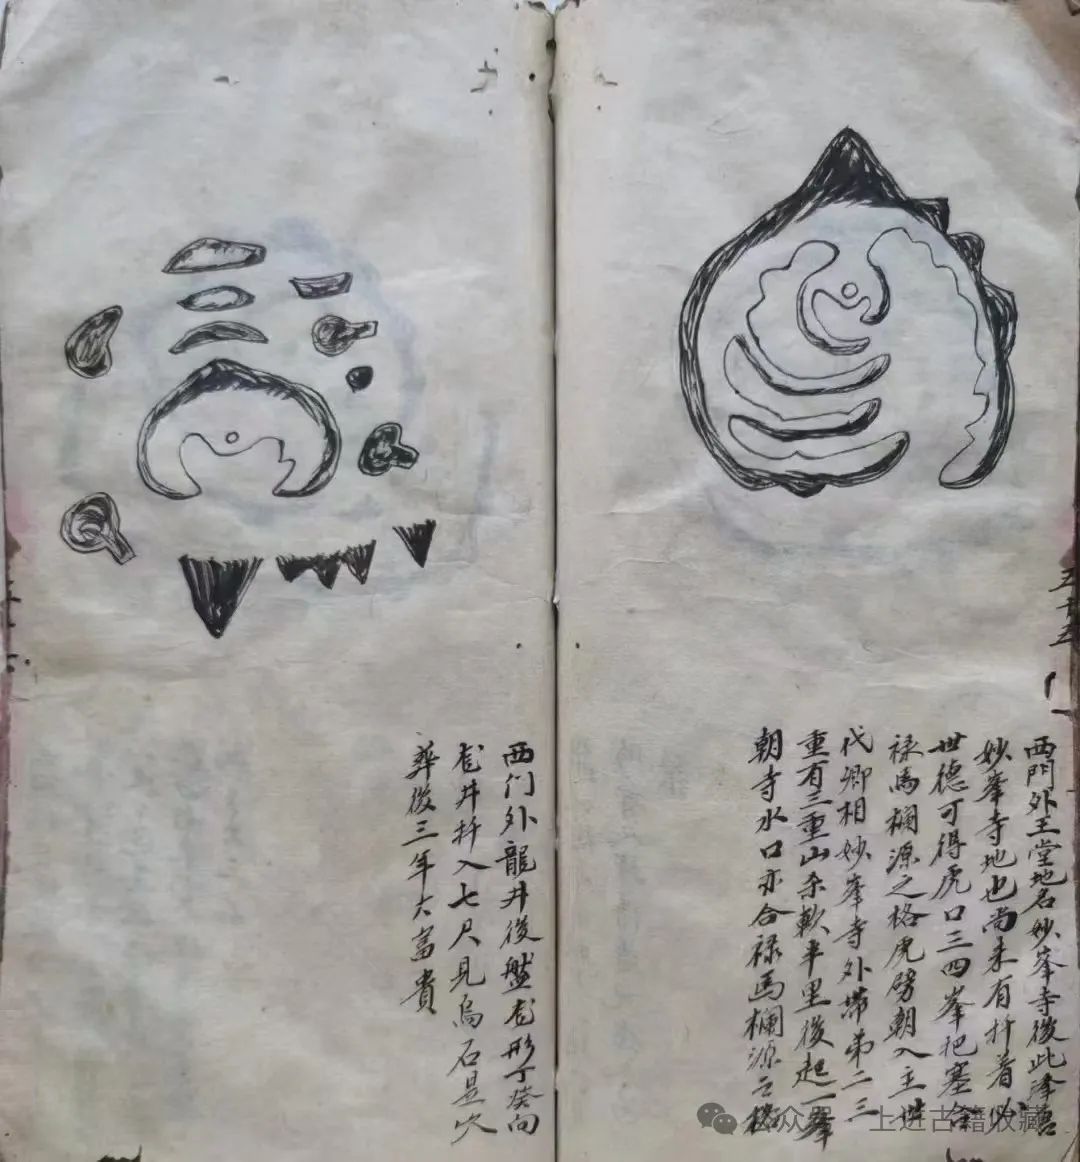 西門外王堂地名妙峯寺後此
妙峯寺地也尚未有扦着必
世德可得虎口三四峯把塞合
禄馬欄源之格虎劈朝入主世
代卿相妙峯寺外帶第二三
重有三重山余軟半里後起一峯
朝寺水口亦合禄馬欄源之格
西门外龍井後盤龙形丁癸向
龙井扦入七尺見烏石是穴
葬後三年大富貴
五十五
公众号 上进古籍收藏